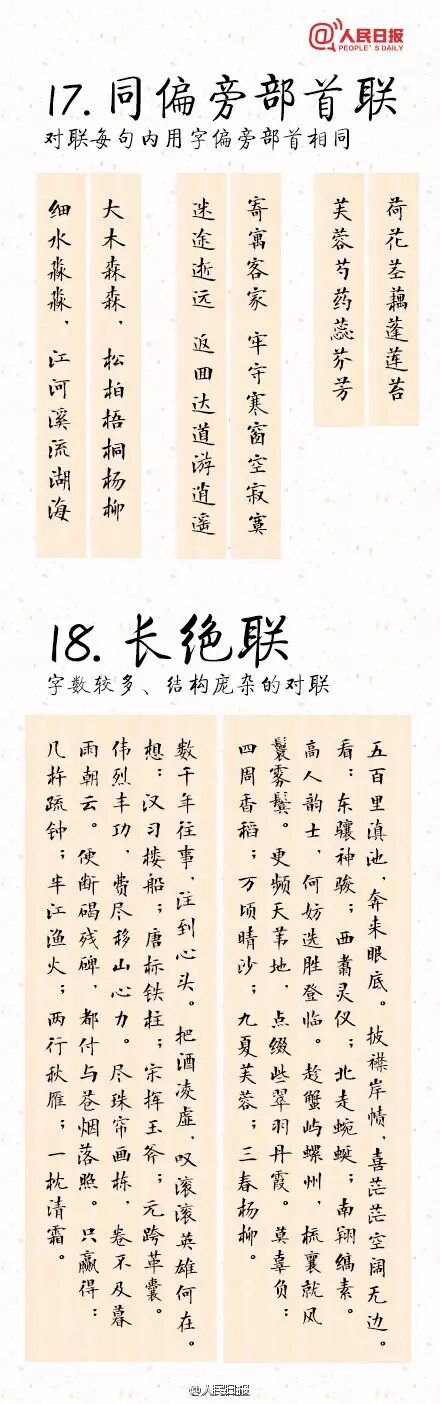 人民日报
PEOPLE'S DAILY
17. 同偏旁部首联
对联每句内用字偏旁部首相同
荷花茎藕蓬莲苔
芙蓉芍药蕊芬芳
寄寓客家 牢守寒窗空寂寞
迷途逝远 返回达道游逍遥
大木森森，松柏梧桐杨柳
细水淼淼，江河溪流湖海
18. 长绝联
字数较多、结构庞杂的对联
五百里滇池，奔来眼底。披襟岸帻，喜茫茫空阔无边。
看：东骧神骏；西翥灵仪；北走蜿蜒；南翔缟素。
高人韵士，何妨选胜登临。趁蟹屿螺州，梳襄就风
鬟雾鬓。更频天苇地，点缀些翠羽丹霞。莫辜负：
四周香稻；万顷晴沙；九夏芙蓉；三春杨柳。
数千年往事，注到心头。把酒凌虚，叹滚滚英雄何在。
想：汉习楼船；唐标铁柱；宋挥玉斧；元跨革囊。
伟烈丰功，费尽移山心力。尽珠帘画栋，卷不及暮
雨朝云。便断碣残碑，都付与苍烟落照。只赢得：
几杵疏钟；半江渔火；两行秋雁；一枕清霜。
@人民日报